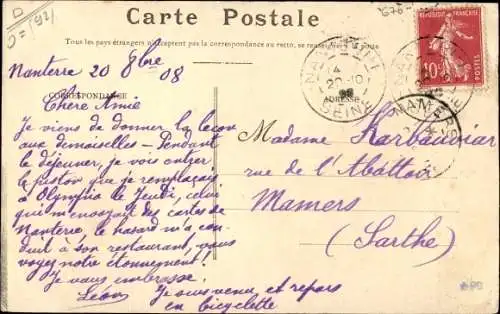 Carte Postale
Tous les pays étrangers n'acceptent pas la correspondance au recto, se renseigner à la poste
RÉPUBLIQUE FRANÇAISE
10c
POSTES
NANTERRE
20-10
08
SEINE
MAMERS
CORRESPONDANCE
ADRESSE
Nanterre 20 8bre 08
Chere Amie
Je viens de donner la leçon
aux demoiselles - Pendant
le déjeuner, je vois entrer
le piston que je remplaçais
à Olympia le Jeudi, celui
qui m'envoyait des cartes de
Nanterre, le hasard m'a con
duit à son restaurant, vous
voyez notre étonnement!
Je vous embrasse.
Léon Je suis venu et repars
en bicyclette
Madame Barbauviar
rue de l'Abattoir
Mamers
(Sarthe)